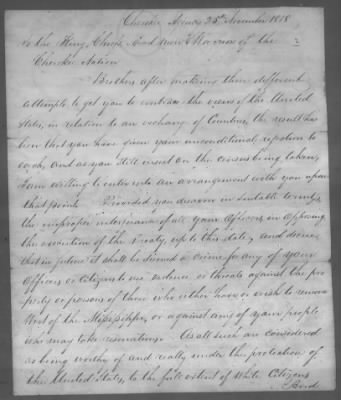 Cherokee Agency 25th November 1818
To the King, Chiefs, Head men & Warriors of the
Cherokee Nation
Brothers after making three different
attempts to get you to embrace the views of the United
States, in relation to an exchange of Countries, the result has
been that you have given your unconditional rejection to
each, and as you still insist on the census being taken,
I am willing to enter into an arrangement with you upon
that point. Provided you disavow in suitable terms,
the improper interference of all your officers in opposing
the execution of the treaty, up to this date, and decree
that in future it shall be deemed a crime for any of your
Officers or Citizens to use violence or threats against the pro
perty or persons of those who either have or wish to remove
West of the Mississippi, or against any of your people
who may take reservations. As all such are considered
as being worthy of and really under the protection of
the United States, to the full extent of White Citizens